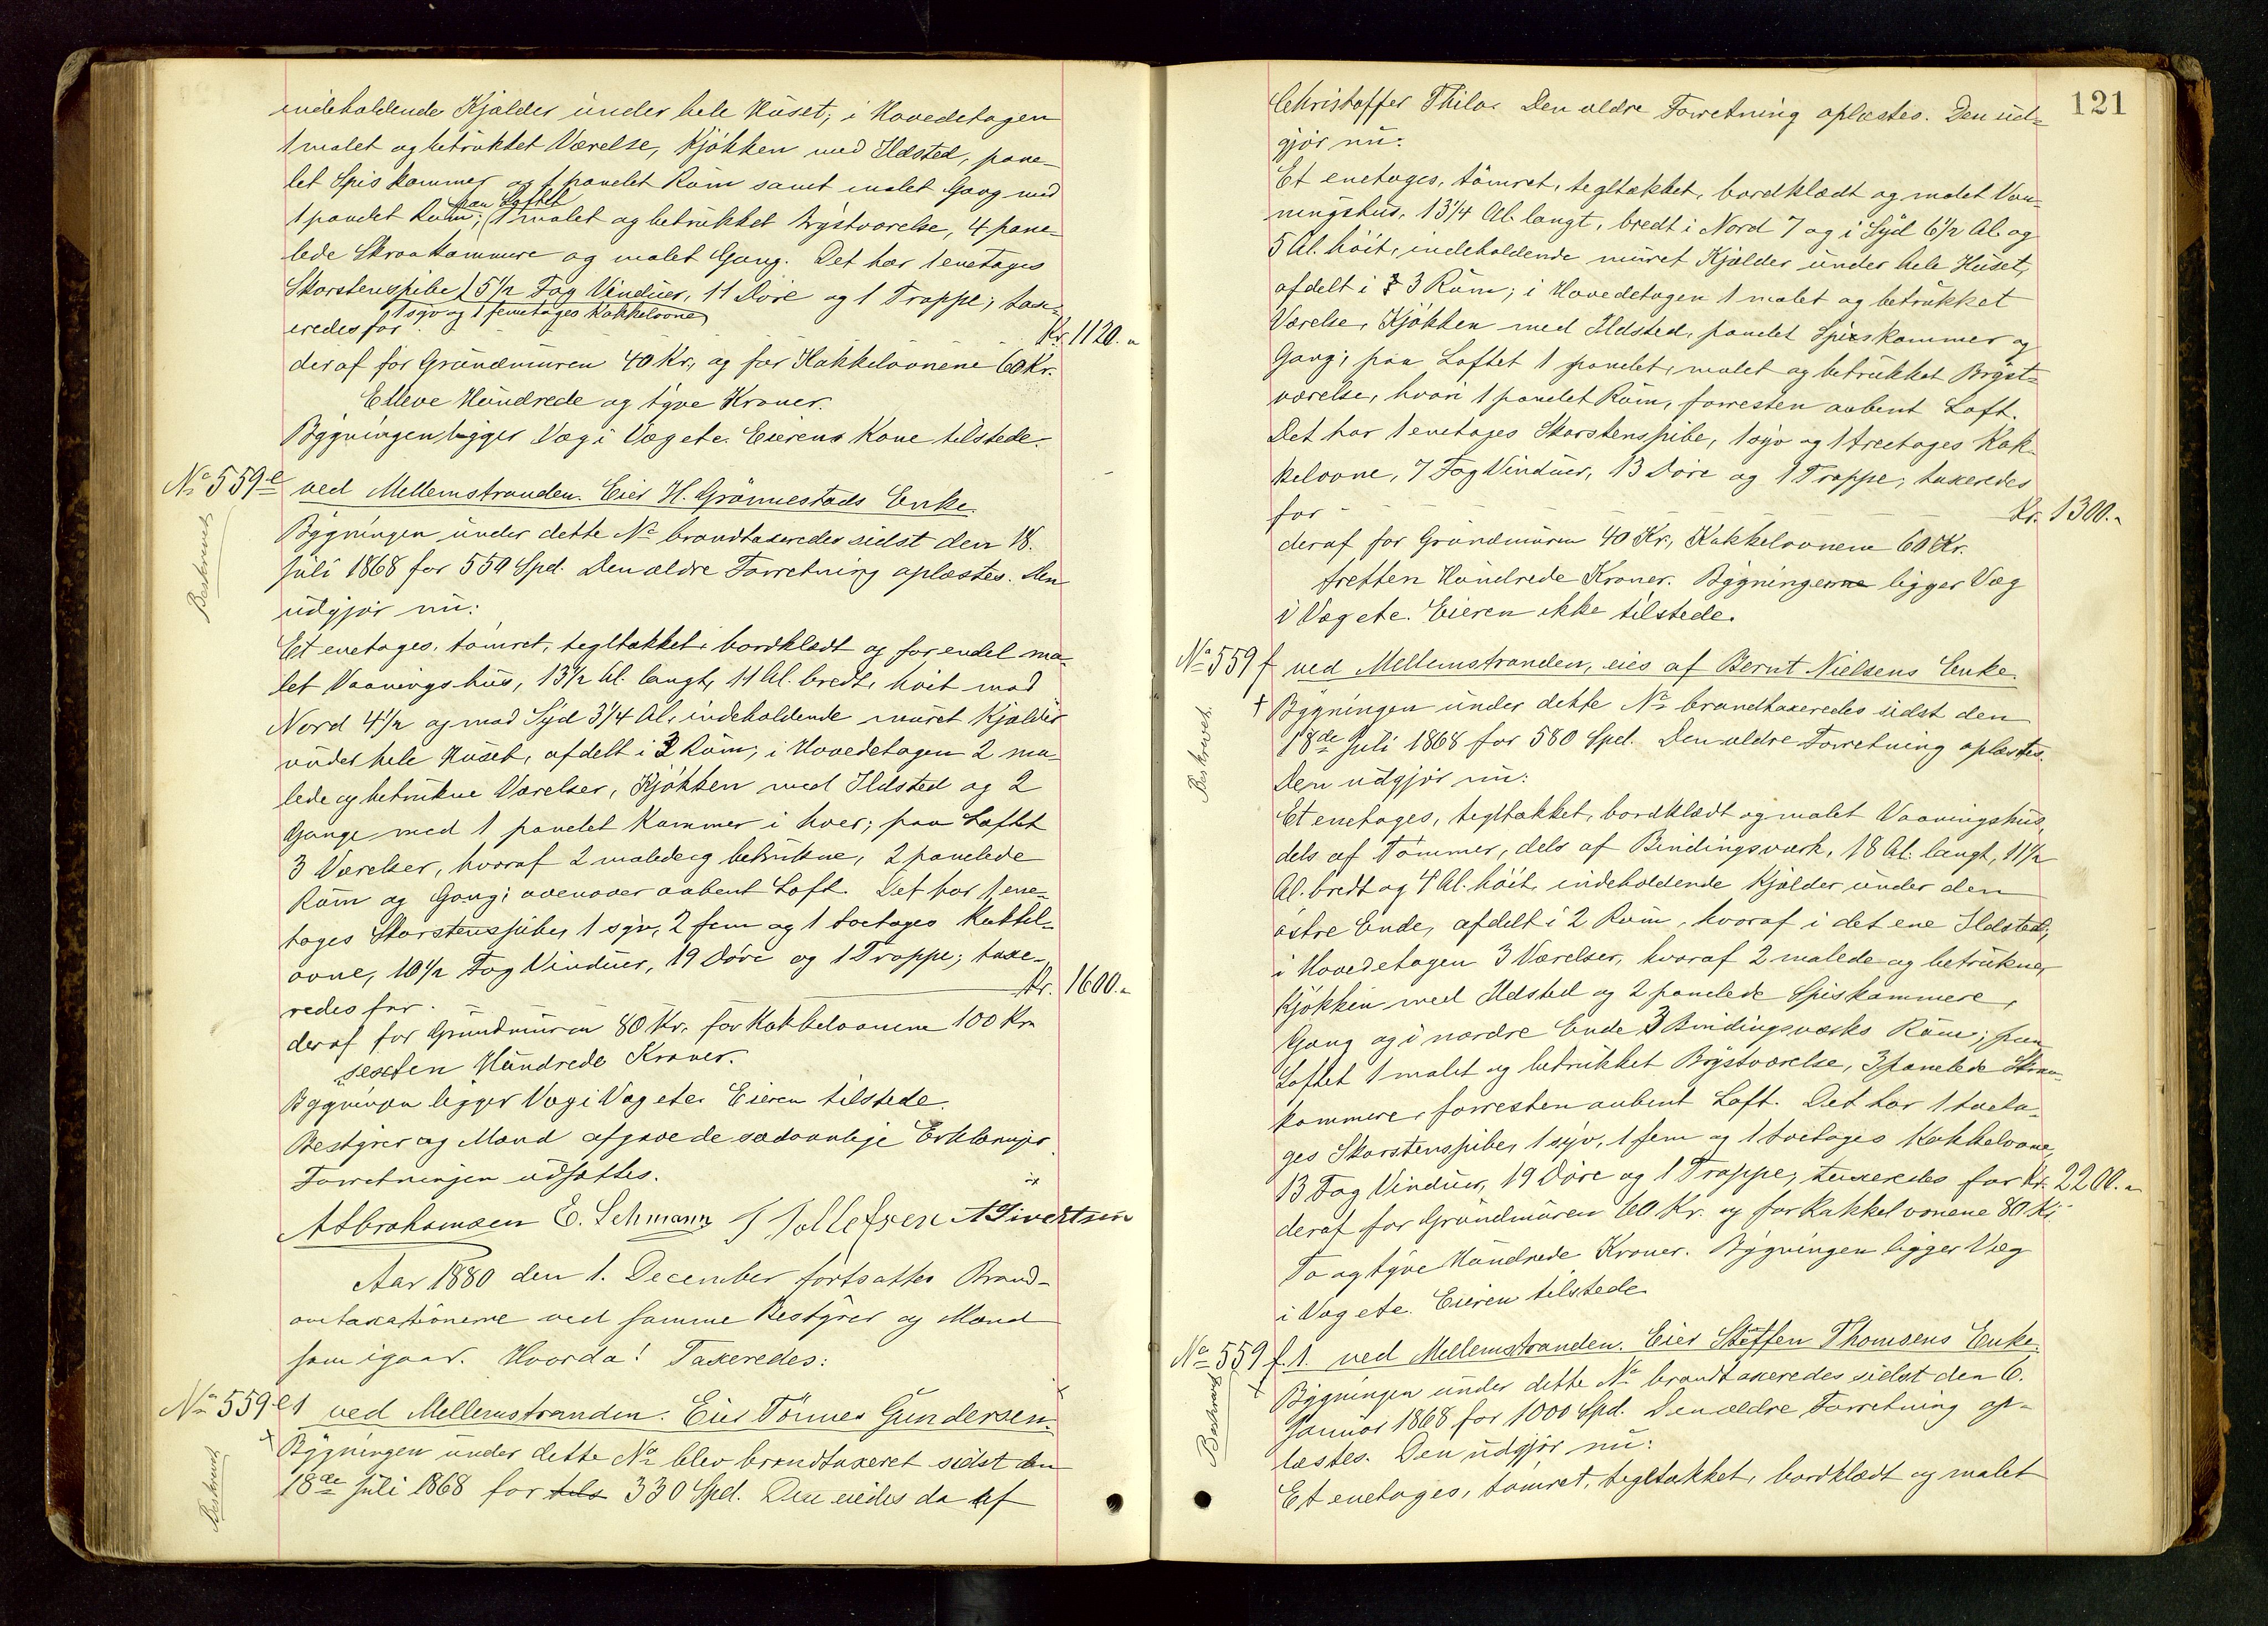 indeholdende Kjælder under hele Huset; i Hovedetagen
1 malet og betrukket Værelse, Kjøkken med Ildsted, pane-
let Spiskammer og 1 panelet Rum samt malet Gang med
paa Loftet
1 panelet Rum; 1 malet og betrukket Brystværelse, 4 pane-
lede Skraakammere og malet Gang. Det har 1 enetages
Skorstenspibe 5½ Fag Vinduer, 11 Døre og 1 Trappe; tax-
1 syv og 1 femetages Kakkelovne
eredes for Kr. 1120.
deraf for Grundmuren 40 Kr., og for Kakkelovnene 60 Kr.
Elleve Hundrede og tyve Kroner.
Bygningen ligger Væg i Væg etc. Eierens Kone tilstede.
No 559 e ved Mellemstranden. Eier H. Grønnestads Enke.
Beskrevet
Bygningen under dette No brandtaxeredes sidst den 18.
Juli 1868 for 550 Spd. Den ældre Forretning oplæstes. Den
udgjør nu:
Et enetages, tømret, tegltækket, bordklædt og for endel ma-
let Vaaningshus, 13½ Al. langt, 11 Al. bredt, høit mod
Nord 4½ og mod Syd 3¼ Al., indeholdende muret Kjælder
under hele Huset, afdelt i 3 Rum; i Hovedetagen 2 ma-
lede og betrukne Værelser, Kjøkken med Ildsted og 2
Gange med 1 panelet Kammer i hver; paa Loftet
3 Værelser, hvoraf 2 malede og betrukne, 2 panelede
Rum og Gang; ovenover aabent Loft. Det har 1 ene-
tages Skorstenspibe, 1 syv, 2 fem og 1 toetages Kakkel-
ovne, 10½ Fag Vinduer, 19 Døre og 1 Trappe; taxe-
redes for Kr. 1600.
deraf for Grundmuren 80 Kr., for Kakkelovnene 100 Kr.
sexten Hundrede Kroner.
Bygningen ligger Væg i Væg etc. Eieren tilstede.
Bestyrer og Mænd afgave de sædvanlige Erklæringer
Forretningen udsattes.
A Abrahamsen E. Lehmann T Tollefsen A Sivertsen
Aar 1880 den 1. December fortsattes Brand-
omtaxationerne ved samme Bestyrer og Mænd
som igaar. Hvorda! Taxeredes:
No 559 e1 ved Mellemstranden. Eier Tønnes Gundersen.
Beskrevet
Bygningen under dette No blev brandtaxeret sidst den
18de Juli 1868 for 330 Spd. Den eiedes da af
121
Christoffer Thilo. Den ældre Forretning oplæstes. Den ud-
gjør nu:
Et enetages, tømret, tegltækket, bordklædt og malet Vaa-
ningshus, 13¼ Al. langt, bredt i Nord 7 og i Syd 6½ Al. og
5 Al. høit, indeholdende muret Kjælder under hele Huset,
afdelt i 3 Rum; i Hovedetagen 1 malet og betrukket
Værelse, Kjøkken med Ildsted, panelet Spiskammer og
Gang; paa Loftet 1 panelet, malet og betrukket Bryst-
værelse, hvori 1 panelet Rum, forresten aabent Loft.
Det har 1 enetages Skorstenspibe, 1 syv og 1 treetages Kak-
kelovne, 7 Fag Vinduer, 13 Døre og 1 Trappe, taxeredes
for Kr. 1300.
deraf for Grundmuren 40 Kr., Kakkelovnene 60 Kr.
tretten Hundrede Kroner. Bygningerne ligger Væg
i Væg etc. Eieren ikke tilstede.
No 559 f ved Mellemstranden, eies af Bernt Nielsens Enke.
Beskrevet
Bygningen under dette No brandtaxeredes sidst den
18de Juli 1868 for 580 Spd. Den ældre Forretning oplæstes.
Den udgjør nu:
Et enetages, tegltækket, bordklædt og malet Vaaningshus,
dels af Tømmer, dels af Bindingsværk, 18 Al. langt, 11½
Al. bredt og 4 Al. høit, indeholdende Kjælder under den
østre Ende, afdelt i 2 Rum, hvoraf i det ene Ildsted;
i Hovedetagen 3 Værelser, hvoraf 2 malede og betrukne,
Kjøkken med Ildsted og 2 panelede Spiskammere,
Gang og i nordre Ende 3 Bindingsværks Rum; paa
Loftet 1 malet og betrukket Brystværelse, 3 panelede Skraa-
kammere, forresten aabent Loft. Det har 1 toeta-
ges Skorstenspibe, 1 syv, 1 fem og 1 toetages Kakkelovne,
13 Fag Vinduer, 19 Døre og 1 Trappe, taxeredes for Kr. 2200.
deraf for Grundmuren 60 Kr. og for Kakkelovnene 80 Kr
To og tyve Hundrede Kroner. Bygningen ligger Væg
i Væg etc. Eieren tilstede
No 559 f. 1. ved Mellemstranden. Eier Steffen Thomsens Enke.
Beskrevet
Bygningen under dette No brandtaxeredes sidst den 6.
Januar 1868 for 1000 Spd. Den ældre Forretning op-
læstes. Den udgjør nu:
Et enetages, tømret, tegltækket, bordklædt og malet